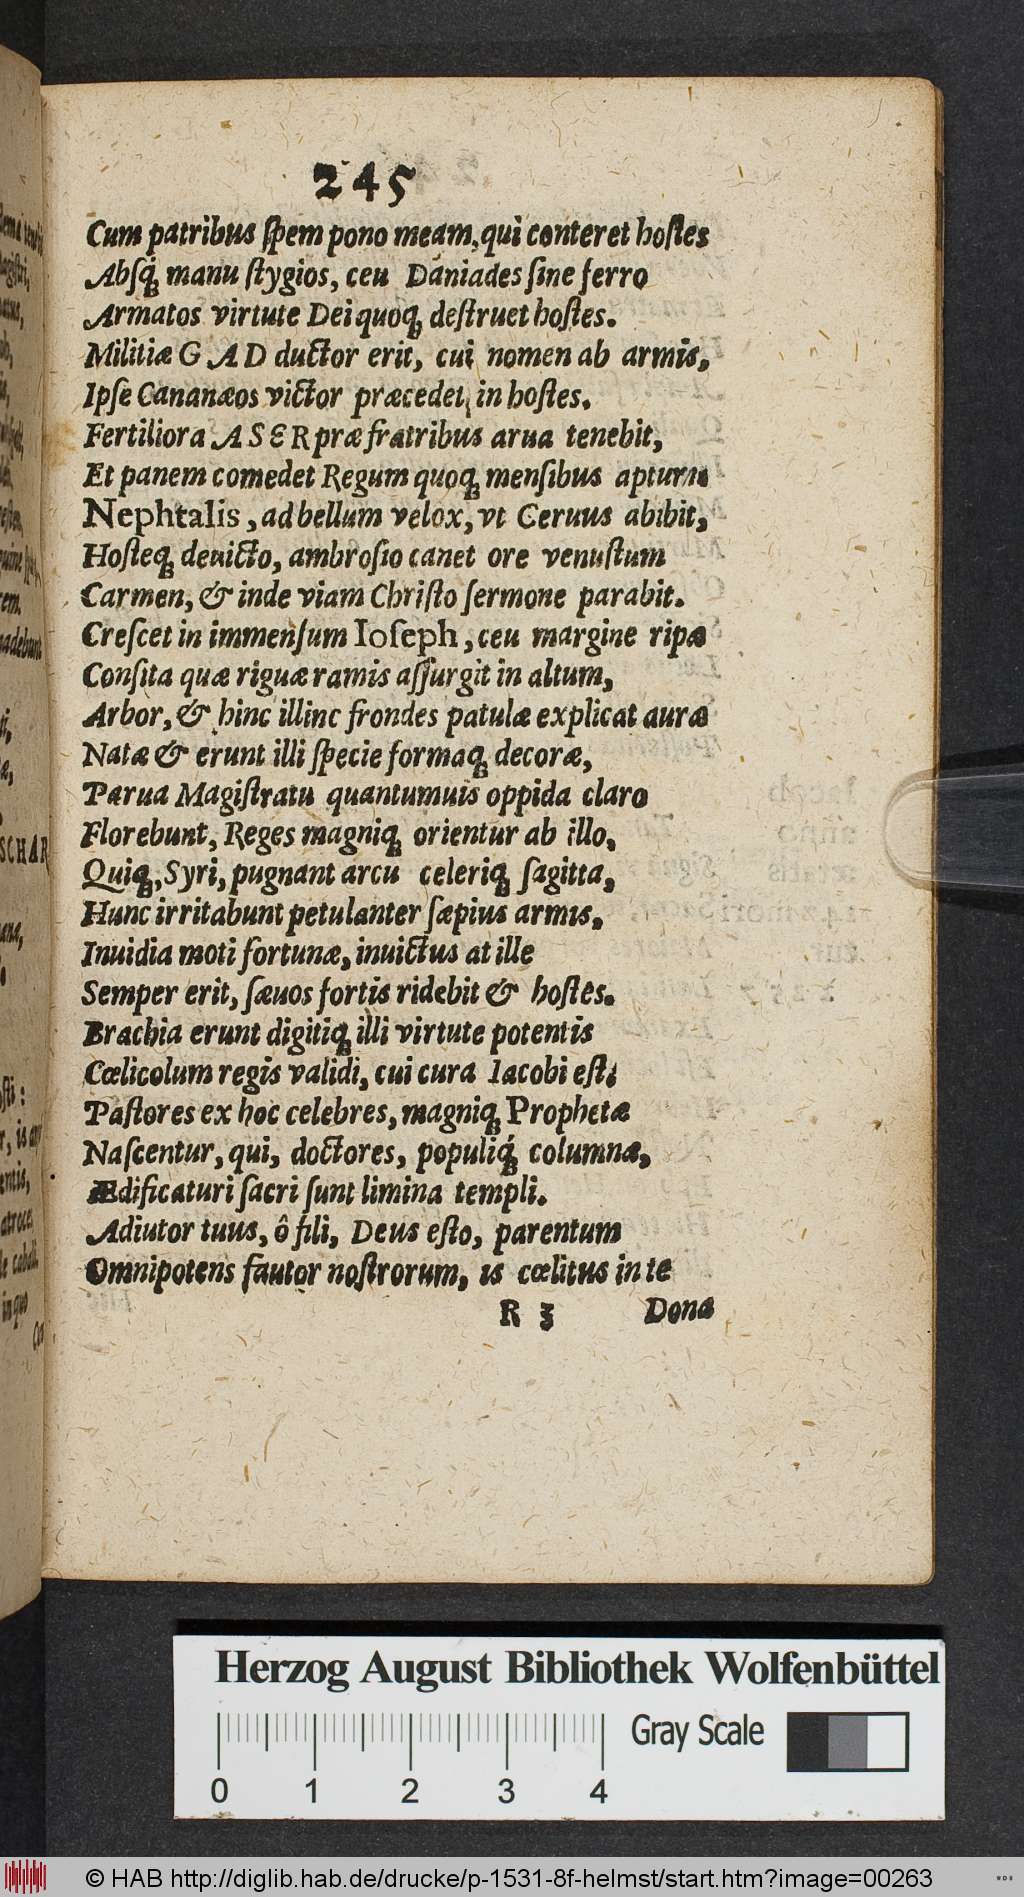 245
Cum patribus ſpem pono meam, qui conteret hoſtes
Abſq́; manu ſtygios, ceu Daniades ſine ferro
Armatos virtute Dei quoq; deſtruet hoſtes.
Militiæ GAD ductor erit, cui nomen ab armis,
Ipſe Cananæos victor præcedet in hoſtes.
Fertiliora ASER præ fratribus arua tenebit,
Et panem comedet Regum quoq; menſibus aptum.
Nephtalis, ad bellum velox, vt Ceruus abibit,
Hoſteq; deuicto, ambroſio canet ore venuſtum
Carmen, & inde viam Chriſto ſermone parabit.
Creſcet in immenſum Ioſeph, ceu margine ripæ
Conſita quæ riguæ ramis aſſurgit in altum,
Arbor, & hinc illinc frondes patulæ explicat auræ
Natæ & erunt illi ſpecie formaq; decoræ,
Parua Magiſtratu quantumuis oppida claro
Florebunt, Reges magniq; orientur ab illo,
Quiq;, Syri, pugnant arcu celeriq; ſagitta,
Hunc irritabunt petulanter ſæpius armis,
Inuidia moti fortunæ, inuictus at ille
Semper erit, ſæuos fortis ridebit & hoſtes.
Brachia erunt digitiq; illi virtute potentis
Cœlicolum regis validi, cui cura Iacobi eſt:
Paſtores ex hoc celebres, magniq; Prophetæ
Naſcentur, qui, doctores, populiq́; columnæ,
Ædificaturi ſacri ſunt limina templi.
Adiutor tuus, ô fili, Deus eſto, parentum
Omnipotens fautor noſtrorum, is cœlitus in te
R 3 Dona
SCHAR
Herzog August Bibliothek Wolfenbüttel
Gray Scale
0 1 2 3 4
© HAB http://diglib.hab.de/drucke/p-1531-8f-helmst/start.htm?image=00263